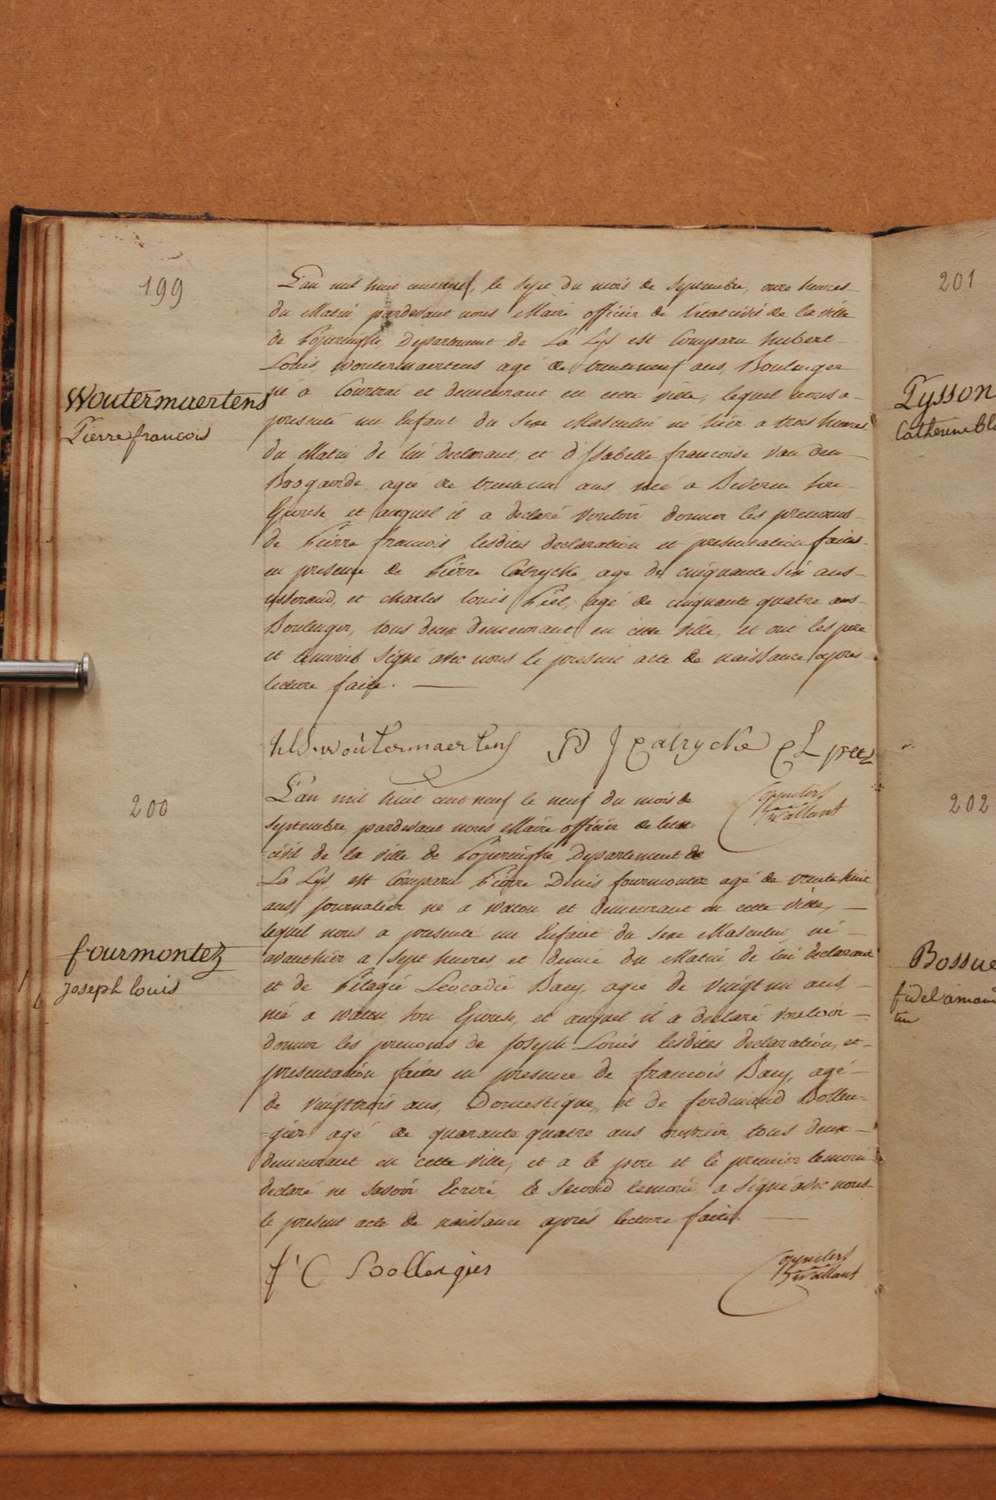 199
Woutermaertens
Pierre francois
L'an mil huit cent neuf, le sept du mois de Septembre, onze heures
du Matin pardevant nous Maire officier de l'etat civil de la ville
de Poperinghe Departement de La Lys est Comparu hubert
Louis Woutermaertens agé de trente neuf ans, Boulanger
né a Courtrai et demeurant en cette ville, lequel nous a
presenté un Enfant du Sexe Masculin né hier a trois heures
du Matin de lui declarant et d'Isabelle francoise Van den
Bosgaerde agee de trente un ans née a Beveren Son
Epouse et auquel il a declaré vouloir donner les prenoms
de Pierre francois lesdites declaration et presentation faites
en presence de Pierre Catrycke agé de cinquante Six ans
et charles louis Peel, agé de cinquante quatre ans
Boulanger, tous deux demeurant en cette ville, et ont les pere
et temoins Signé avec nous le present acte de naissance apres
lecture faite.
hLs. woutermaertens P J Catrycke C L peel
200
fourmontez
Joseph louis
L'an mil huit cent neuf le neuf du mois de
Septembre, pardevant nous Maire officier de l'etat
civil de la ville de Poperinghe, Departement de
La Lys est Comparu Pierre Denis fourmontez agé de trente huit
ans Journalier né a watou et demeurant en cette ville,
lequel nous a presenté un Enfant du Sexe Masculin né
avanthier a Sept heures et demie du Matin de lui declarant
et de Pelagie Leocadie Baey agee de vingt un ans
née a watou Son Epouse, et auquel il a declaré vouloir
donner les prenoms de Joseph Louis lesdites declaration, et
presentation faites en presence de francois Baey, agé
de vingt trois ans, Domestique, et de ferdinand Bollen-
-gier agé de quarante quatre ans ouvrier, tous deux
demeurant en cette ville, et a le pere et le premier temoin
declaré ne Savoir Ecrire, le Second temoin a Signé avec nous
le present acte de naissance aprés lecture faite.
f' C Bollengier
201
Tysson
Catherine
202
Bossue